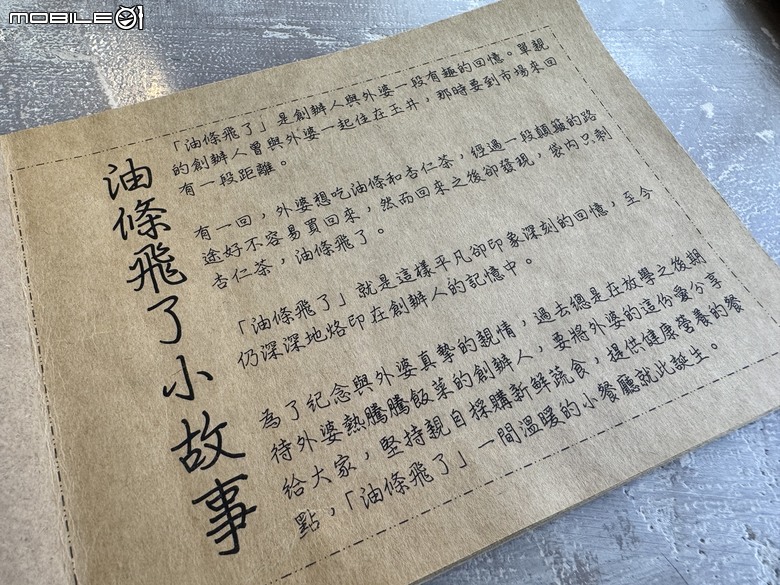 mobile01
油條飛了小故事
「油條飛了」是創辦人與外婆一段有趣的回憶。單親
的創辦人曾與外婆一起住在玉井，那時要到市場來回
有一段距離。
有一回，外婆想吃油條和杏仁茶，經過一段顛簸的路
途好不容易買回來，然而回來之後卻發現，袋內只剩
杏仁茶，油條飛了。
「油條飛了」就是這樣平凡卻印象深刻的回憶，至今
仍深深地烙印在創辦人的記憶中。
為了紀念與外婆真摯的親情，過去總是在放學之後期
待外婆熱騰騰飯菜的創辦人，要將外婆的這份愛分享
給大家，堅持親自採購新鮮蔬食，提供健康營養的餐
點，「油條飛了」一間溫暖的小餐廳就此誕生。